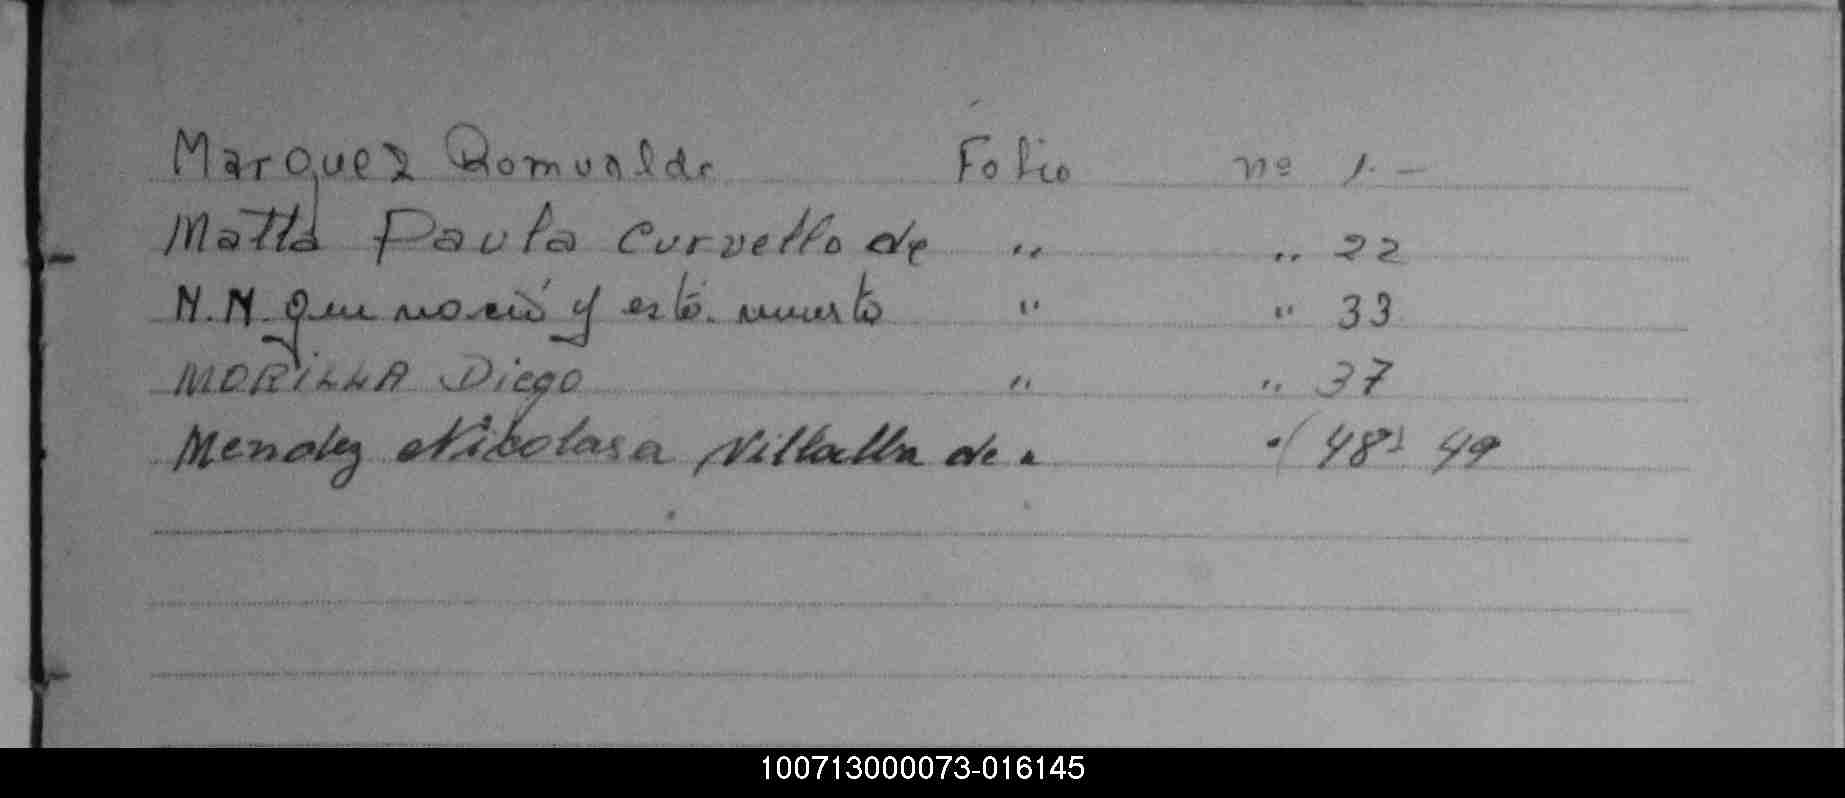 Marquez Romualdo Folio nº 1.-
Matta Paula Curvello de " " 22
N.N. que nació y está muerto " " 33
MORILLA Diego " " 37
Mendez Nikolasa Villalba de " " 48 49
100713000073-016145